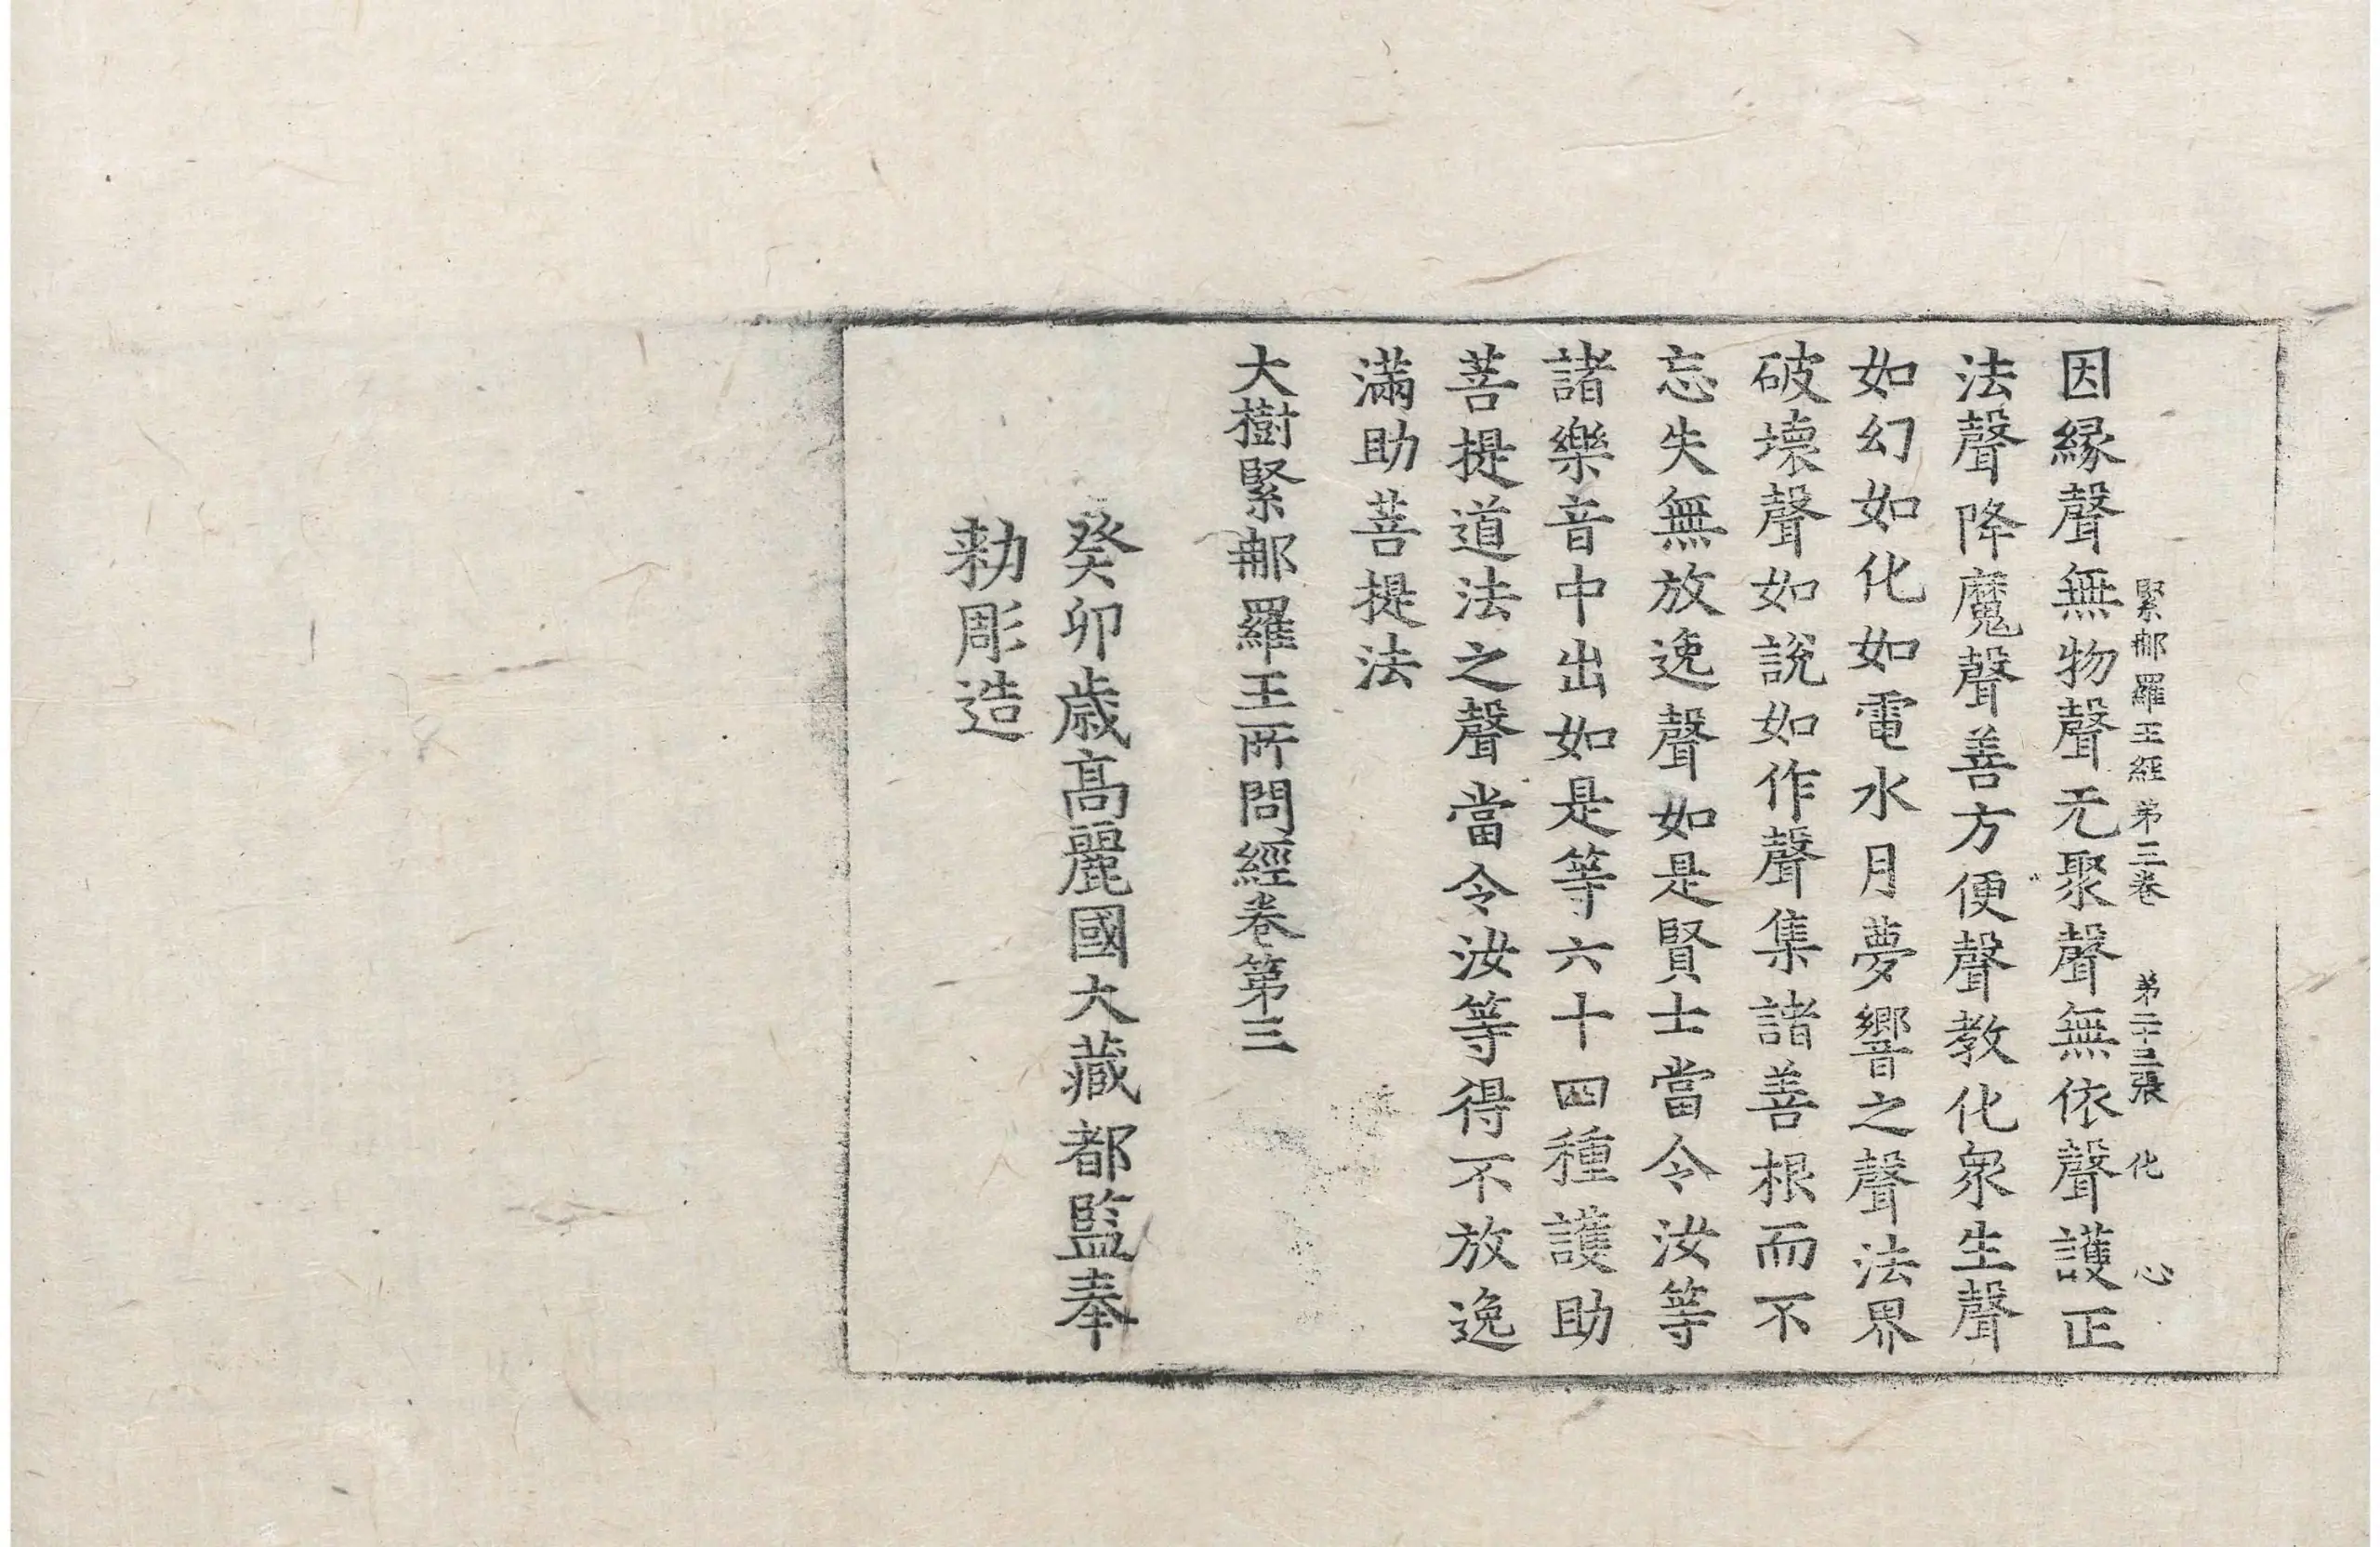 緊那羅王經第三卷 第二十三張 化 心
因縁聲無物聲无聚聲無依聲護正
法聲降魔聲善方便聲教化衆生聲
如幻如化如電水月夢響之聲法界
破壞聲如說如作聲集諸善根而不
忘失無放逸聲如是賢士當令汝等
諸樂音中出如是等六十四種護助
菩提道法之聲當令汝等得不放逸
滿助菩提法
大樹緊那羅王所問經卷第三
癸卯歳高麗國大藏都監奉
勑彫造